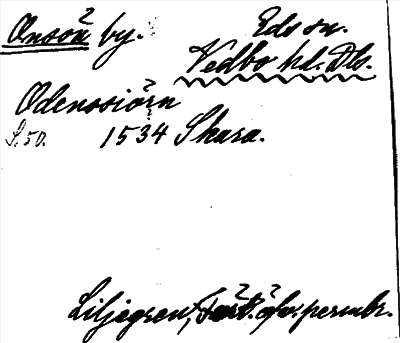 Onsön by. Eds sn.
Vedbo hd. Dls.
Odenssiörn
S. 50. 1534 Skara.
Liljegren, öfv. permbr.